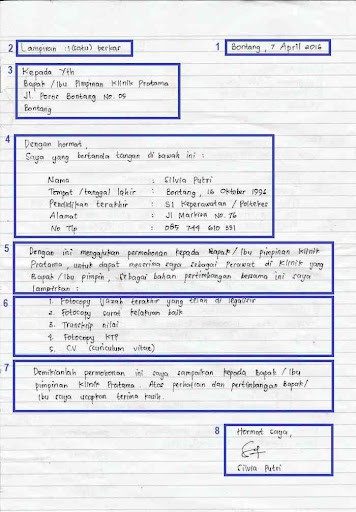 2 Lampiran : 1 (satu) berkas
1 Bontang, 7 April 2016
3 Kepada Yth
Bapak / Ibu Pimpinan Klinik Pratama
Jl. Poros Bontang No. 05
Bontang
4 Dengan hormat,
Saya yang bertanda tangan di bawah ini :
Nama : Silvia Putri
Tempat /tanggal lahir : Bontang, 16 Oktober 1996
Pendidikan terakhir : S1 Keperawatan / Poltekes
Alamat : Jl Markisa No. 76
No Tlp : 085 749 610 331
5 Dengan ini mengajukan permohonan kepada Bapak / Ibu pimpinan Klinik
Pratama, untuk dapat menerima saya sebagai Perawat di Klinik yang
Bapak / Ibu pimpin, Sebagai bahan pertimbangan bersama ini saya
lampirkan :
6 1. Fotocopy Ijazah terakhir yang telah di legalisir
2. Fotocopy surat kelakuan baik
3. Transkrip nilai
4. Fotocopy KTP
5. CV (curiculum vitae)
7 Demikianlah permohonan ini saya sampaikan kepada Bapak / Ibu
pimpinan Klinik Pratama. Atas perhatian dan pertimbangan Bapak /
Ibu saya ucapkan terima kasih.
8 Hormat saya,
Silvia Putri